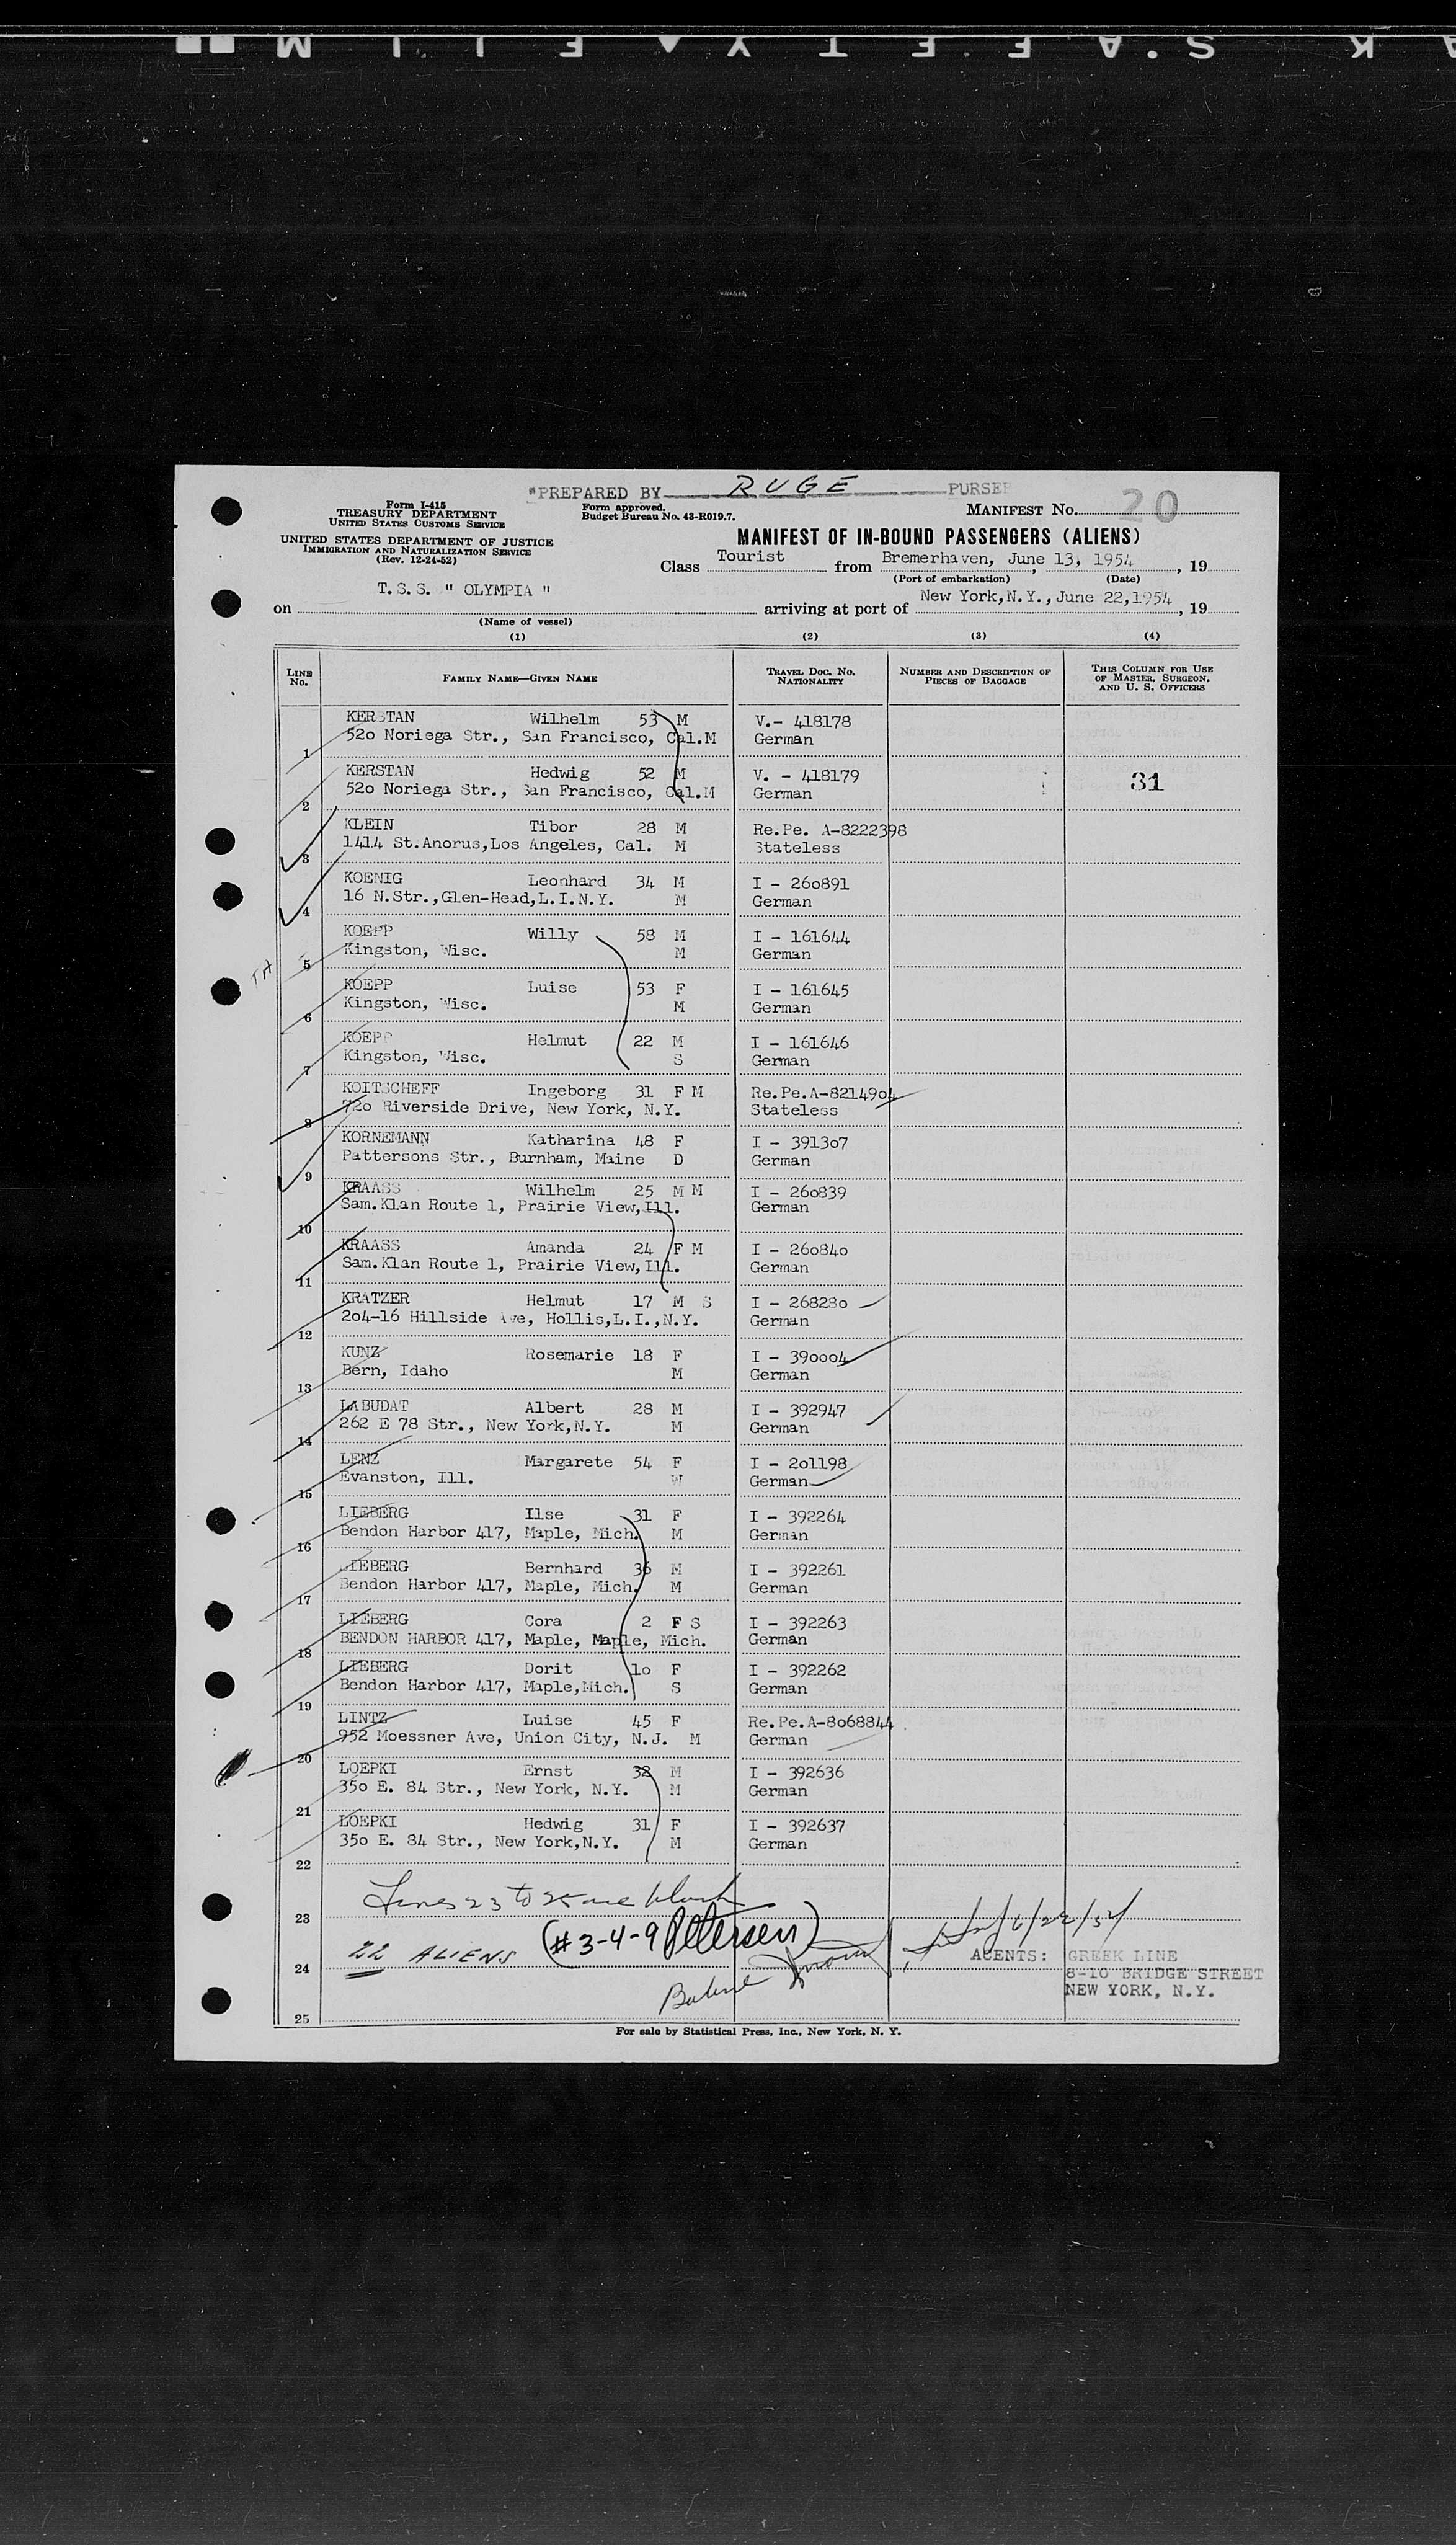 "PREPARED BY RUGE PURSER
Form I-415
TREASURY DEPARTMENT
UNITED STATES CUSTOMS SERVICE
Form approved.
Budget Bureau No. 43-R019.7.
MANIFEST No. 20
UNITED STATES DEPARTMENT OF JUSTICE
IMMIGRATION AND NATURALIZATION SERVICE
(Rev. 12-24-52)
MANIFEST OF IN-BOUND PASSENGERS (ALIENS)
Class Tourist from Bremerhaven, June 13, 1954, 19
(Port of embarkation) (Date)
on T.S.S. " OLYMPIA " arriving at port of New York,N.Y.,June 22,1954, 19
(Name of vessel)
(1) (2) (3) (4)
LINE No. FAMILY NAME—GIVEN NAME TRAVEL DOC. NO. NATIONALITY NUMBER AND DESCRIPTION OF PIECES OF BAGGAGE THIS COLUMN FOR USE OF MASTER, SURGEON, AND U. S. OFFICERS
KERSTAN Wilhelm 53 M V.- 418178
1 52o Noriega Str., San Francisco, Cal.M German
KERSTAN Hedwig 52 M V. - 418179 31
2 52o Noriega Str., San Francisco, Cal.M German
KLEIN Tibor 28 M Re.Pe. A-8222398
3 1414 St.Anorus,Los Angeles, Cal. M Stateless
KOENIG Leonhard 34 M I - 26o891
4 16 N.Str.,Glen-Head,L.I.N.Y. M German
KOEPP Willy 58 M I - 161644
5 Kingston, Wisc. M German
KOEPP Luise 53 F I - 161645
6 Kingston, Wisc. M German
KOEPP Helmut 22 M I - 161646
7 Kingston, Wisc. S German
KOITSCHEFF Ingeborg 31 F M Re.Pe.A-82149o4
8 72o Riverside Drive, New York, N.Y. Stateless
KORNEMANN Katharina 48 F I - 3913o7
9 Pattersons Str., Burnham, Maine D German
KRAASS Wilhelm 25 M M I - 26o839
10 Sam.Klan Route 1, Prairie View,Ill. German
KRAASS Amanda 24 F M I - 26o84o
11 Sam.Klan Route 1, Prairie View,Ill. German
KRATZER Helmut 17 M S I - 26828o
12 2o4-16 Hillside Ave, Hollis,L.I.,N.Y. German
KUNZ Rosemarie 18 F I - 39ooo4
13 Bern, Idaho M German
LABUDAT Albert 28 M I - 392947
14 262 E 78 Str., New York,N.Y. M German
LENZ Margarete 54 F I - 2o1198
15 Evanston, Ill. W German
LIEBERG Ilse 31 F I - 392264
16 Bendon Harbor 417, Maple, Mich. M German
LIEBERG Bernhard 36 M I - 392261
17 Bendon Harbor 417, Maple, Mich. M German
LIEBERG Cora 2 F S I - 392263
18 BENDON HARBOR 417, Maple, Maple, Mich. German
LIEBERG Dorit 1o F I - 392262
19 Bendon Harbor 417, Maple,Mich. S German
LINTZ Luise 45 F Re.Pe.A-8o68844
20 952 Moessner Ave, Union City, N.J. M German
LOEPKI Ernst 38 M I - 392636
21 35o E. 84 Str., New York, N.Y. M German
LOEPKI Hedwig 31 F I - 392637
22 35o E. 84 Str., New York,N.Y. M German
Lines 23 to 25 are blank
23
22 ALIENS (#3-4-9 Petersen) 6/22/54
24
AGENTS: GREEK LINE
8-10 BRIDGE STREET
NEW YORK, N.Y.
25
For sale by Statistical Press, Inc., New York, N. Y.